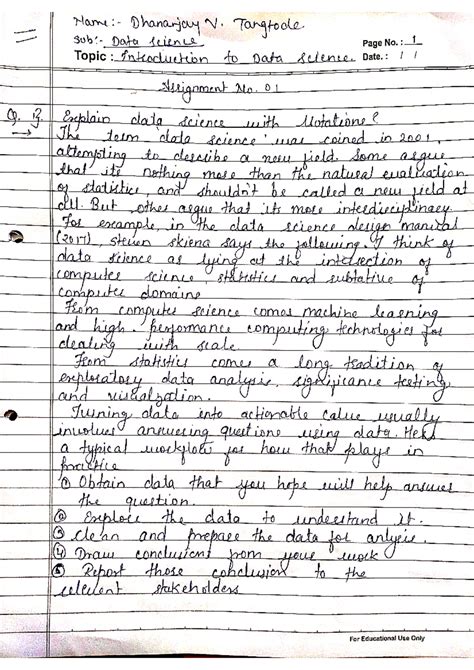 Name:- Dhananjay V. Tangtode
Sub:- Data Science
Page No.: 1
Topic : Introduction to Data Science.
Date.: / /
Assignment No. 01
Q. 1}. Explain data science with Notations?
→ The term 'data science' was coined in 2001,
attempting to describe a new field. Some argue
that its nothing more than the natural evaluation
of statistics, and shouldn't be called a new field at
all. But others argue that its more interdisciplinary
For example, in the data science design manual
(2017), steven skiena says the following. I think of
data science as lying at the intersection of
computer science, statistics and
of
computer domains
From computer science comes machine learning
and high performance computing technologies for
dealing with scale.
From statistics comes a long tradition of
exploratory data analysis, significance testing
and visualization.
Turning data into actionable value usually
involves answering questions using data. Here
a typical workflow for how that plays in
practice
① Obtain data that you hope will help answer
the question.
② Explore the data to understand it.
③ clean and prepare the data for
④ Draw from your work
⑤ Report those conclusion to the
stakeholders
For Educational Use Only